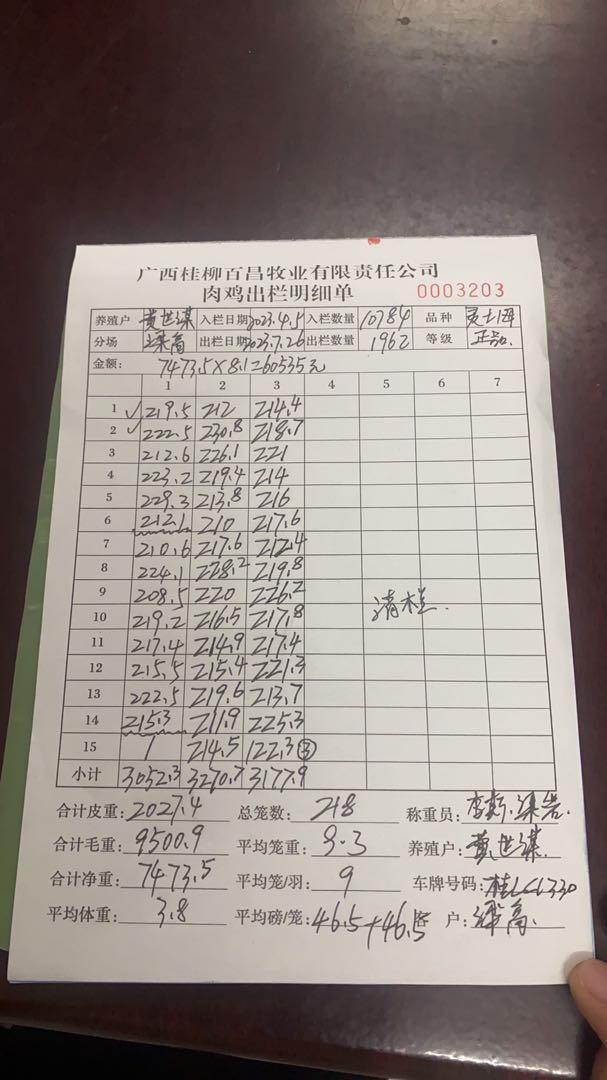 广西桂柳百昌牧业有限责任公司
肉鸡出栏明细单 0003203
养殖户 黄世谋 入栏日期 2023.4.5 入栏数量 10784 品种
分场 出栏日期 2023.7.26 出栏数量 1962 等级 正品
金额: 7473.5×8.1=60535元
1 2 3 4 5 6 7
1 ✓ 219.5 212 214.4
2 ✓ 222.5 230.8 218.7
3 212.6 226.1 221
4 223.2 219.4 214
5 229.3 213.8 216
6 212.1 210 217.6
7 210.6 217.6 212.4
8 224.1 228.2 219.8
9 208.5 220 226.2 清栏.
10 219.2 216.5 217.8
11 217.4 214.9 217.4
12 215.5 215.4 221.3
13 222.5 219.6 213.7
14 215.3 211.9 225.3
15 / 214.5 122.3 ③
小计 3052.3 3270.7 3177.9
合计皮重: 2027.4 总笼数: 218 称重员:
合计毛重: 9500.9 平均笼重: 9.3 养殖户: 黄世谋.
合计净重: 7473.5 平均笼/羽: 9 车牌号码: 桂LC1330
平均体重: 3.8 平均磅/笼: 46.5+46.5 客户: